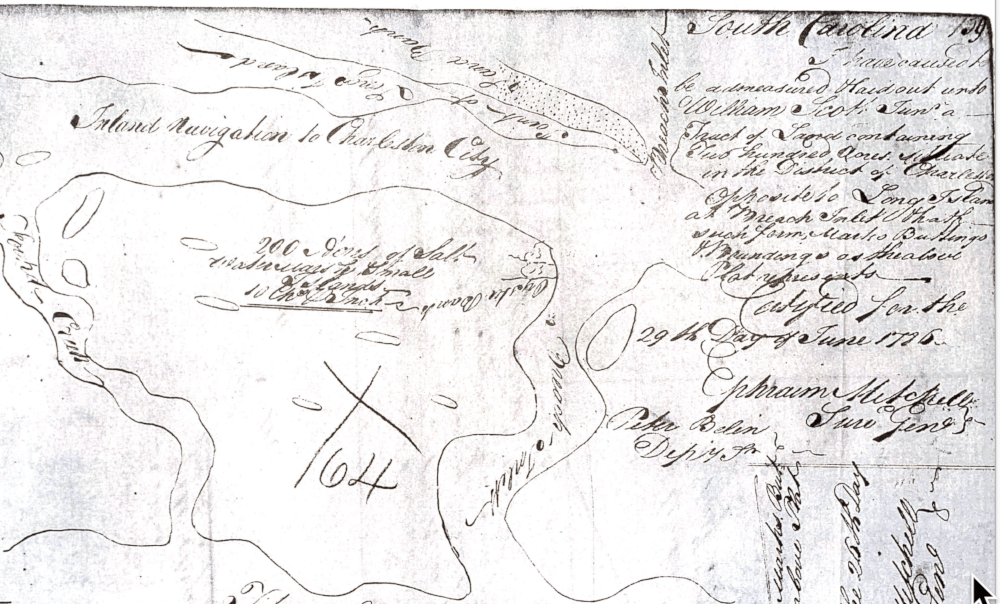 South Carolina 159
I have caused to
be admeasured & laid out unto
William Scott Junr. a
Tract of Land containing
Two hundred Acres, situate
in the District of Charleston
Opposite to Long Island
at Breach Inlet & hath
such form, Marks Buttings
& Boundings as the above
Plat represents
Certified for the
29th Day of June 1786
Ephraim Mitchell
Surv Genl
Peter Belin
Depy Sr
Inland Navigation to Charleston City
Point of Long Island
Sand Bank
Inlet
200 Acres of Salt
Small
Islands
10 Chs Inch
Oyster Bank
Creek
Inlet
164
Marks But
above Plat
26th Day
Mitchell
Genl